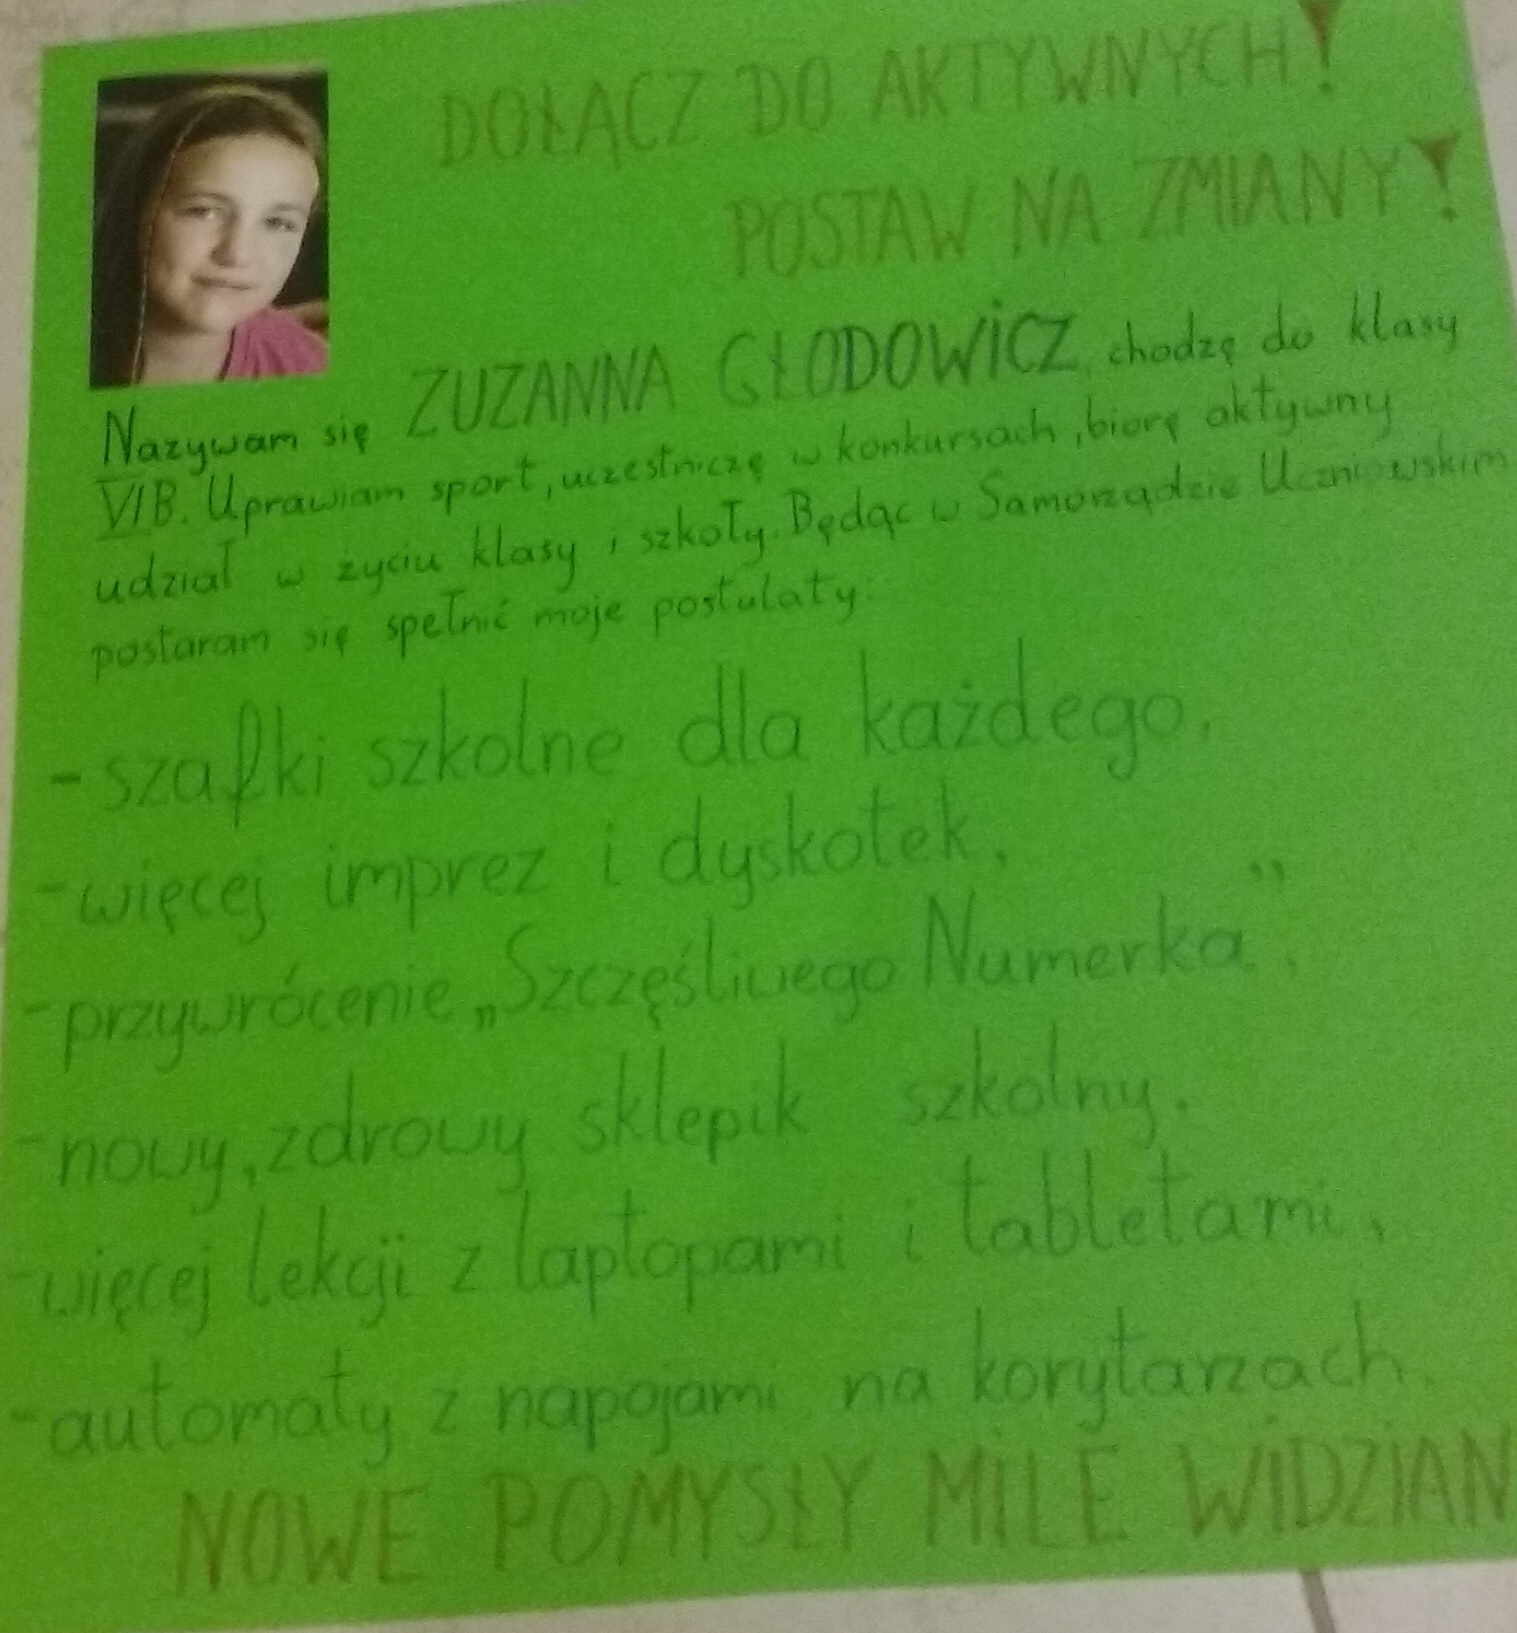 DOŁĄCZ DO AKTYWNYCH!
POSTAW NA ZMIANY!
Nazywam się ZUZANNA GŁODOWICZ, chodzę do klasy
VIB. Uprawiam sport, uczestniczę w konkursach, biorę aktywny
udział w życiu klasy i szkoły. Będąc w Samorządzie Uczniowskim
postaram się spełnić moje postulaty:
- szafki szkolne dla każdego,
- więcej imprez i dyskotek,
- przywrócenie „Szczęśliwego Numerka”,
- nowy, zdrowy sklepik szkolny,
- więcej lekcji z laptopami i tabletami,
- automaty z napojami na korytarzach.
NOWE POMYSŁY MILE WIDZIAN